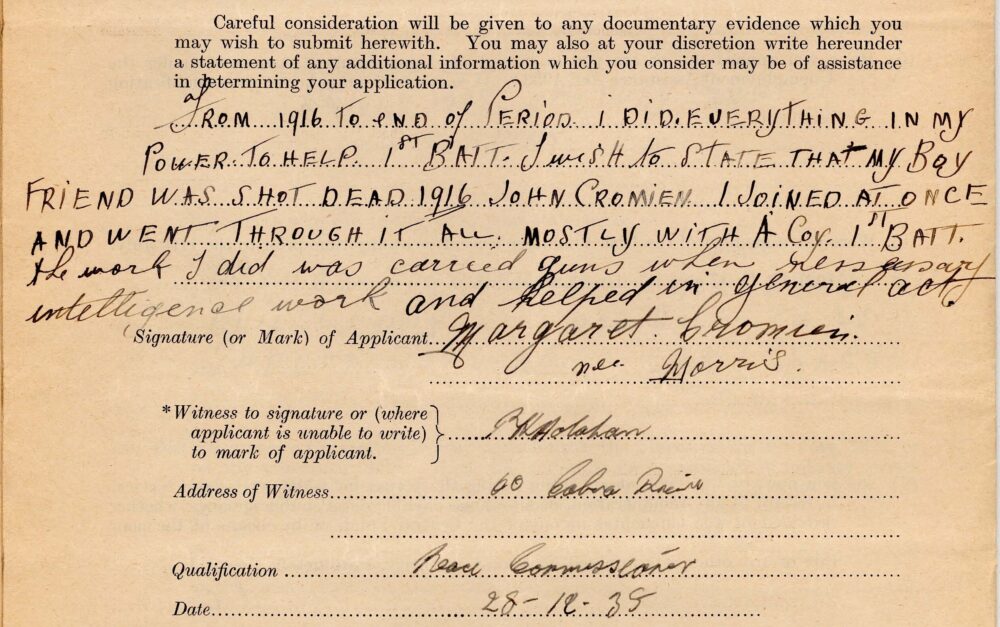 Careful consideration will be given to any documentary evidence which you
may wish to submit herewith. You may also at your discretion write hereunder
a statement of any additional information which you consider may be of assistance
in determining your application.
FROM 1916 TO end of PERIOD I DID EVERYTHING IN MY
POWER TO HELP 1ST BATT. I wish to STATE THAT MY BOY
FRIEND WAS SHOT DEAD 1916 JOHN CROMIEN I JOINED AT ONCE
AND WENT THROUGH IT ALL. MOSTLY WITH A Coy. 1ST BATT.
the work I did was carried guns when nessessary
intelligence work and helped in general acts
(Signature (or Mark) of Applicant Margaret Cromien
nee Morris.
*Witness to signature or (where
applicant is unable to write)
to mark of applicant.
Holohan
Address of Witness 60 Cabra
Qualification Peace Commissioner
Date 28-12-38